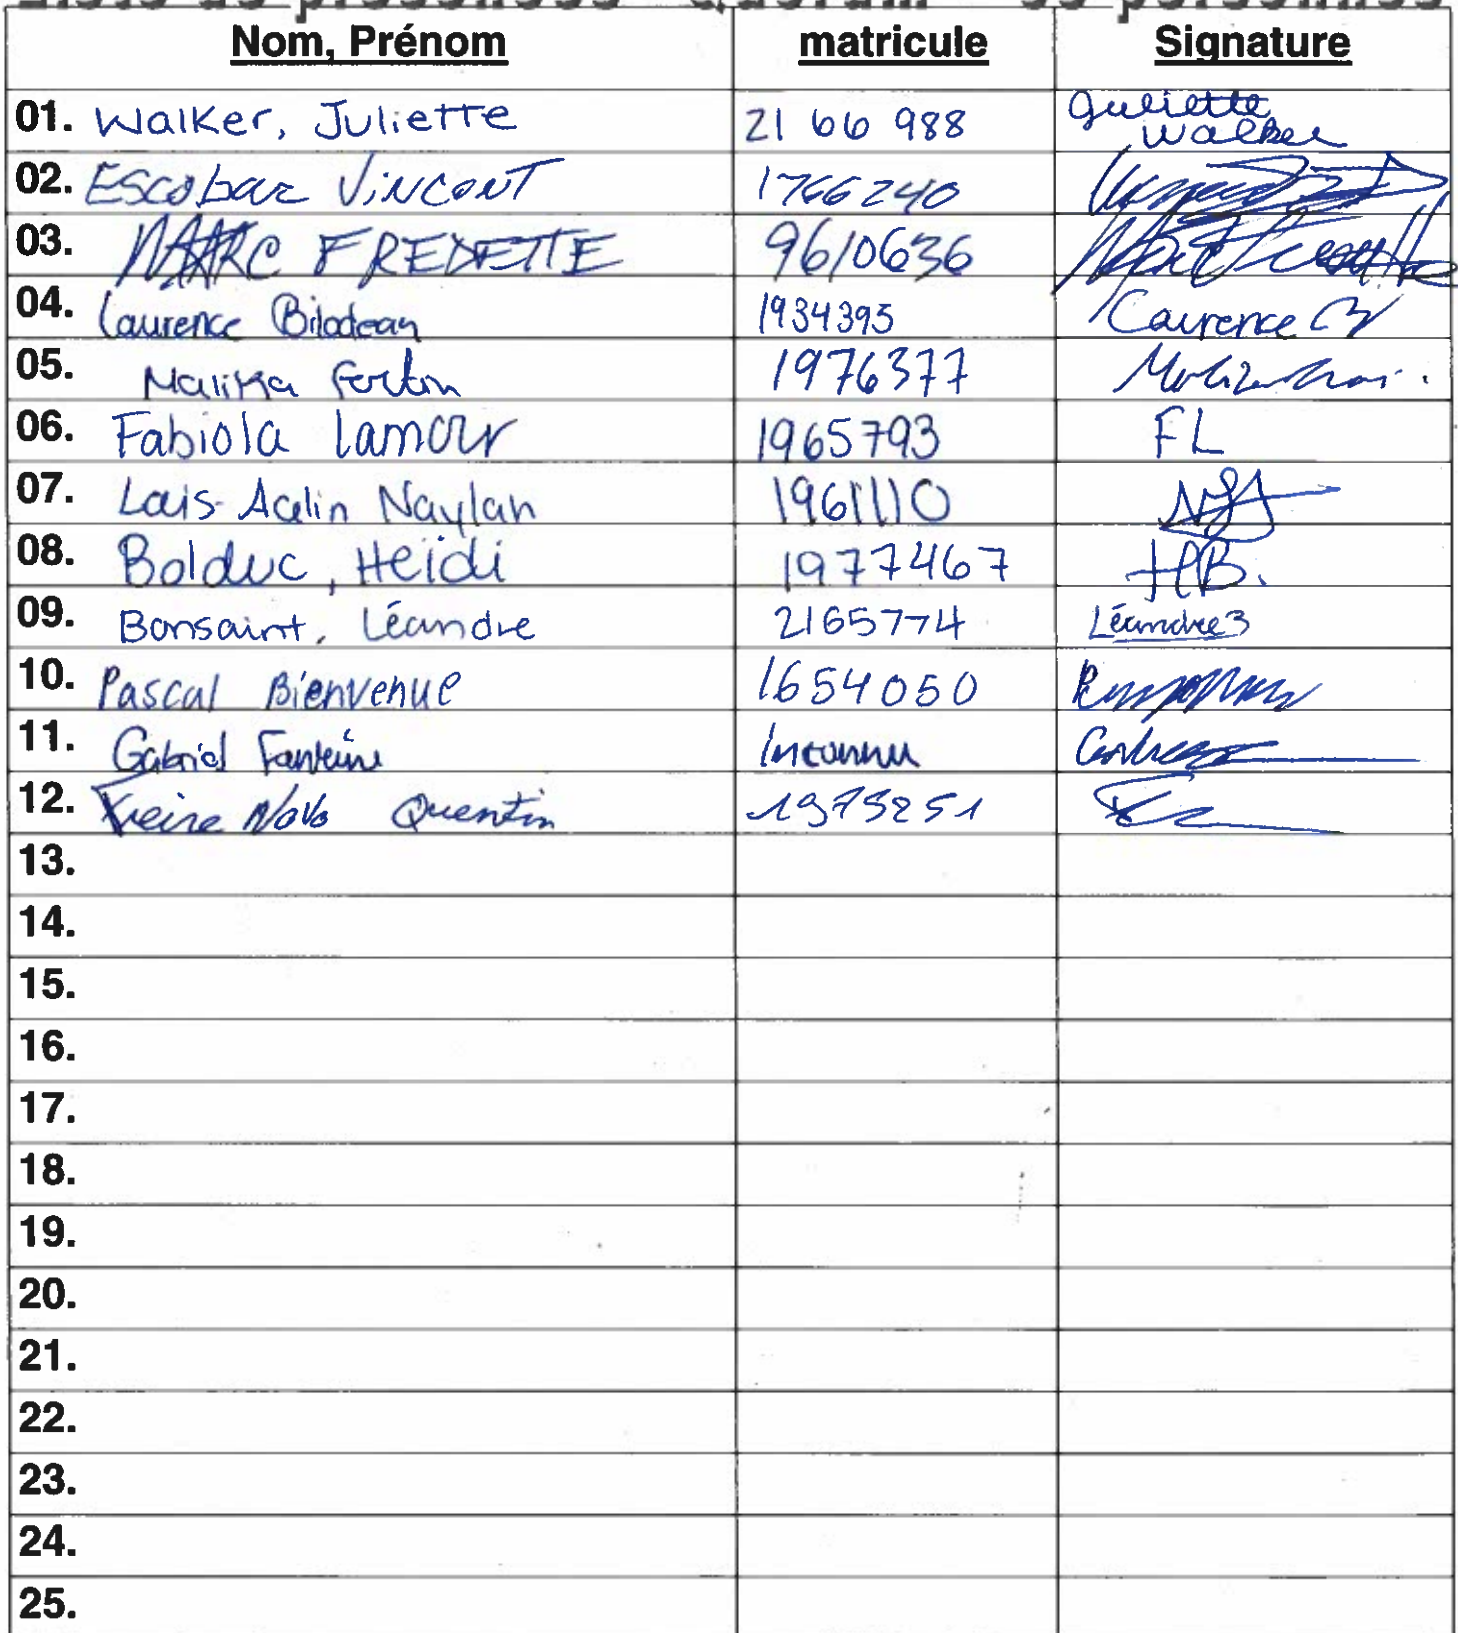 Liste de présences Quorum personnes
Nom, Prénom matricule Signature
01. Walker, Juliette 21 66 988 Juliette Walker
02. Escobar Vincent 1766240
03. MARC FREDETTE 9610636 Marc Fredette
04. Laurence Bilodeau 1934395 Laurence B
05. Malika Fortin 1976377
06. Fabiola Lamour 1965793 FL
07. Louis-Aclin Naylah 1961110
08. Bolduc, Heïdi 1977467 HB.
09. Bonsaint, Léandre 2165774 Léandre B
10. Pascal Bienvenue 1654050
11. Gabriel Fontaine Inconnu
12. Freire Novo Quentin 1975251
13.
14.
15.
16.
17.
18.
19.
20.
21.
22.
23.
24.
25.